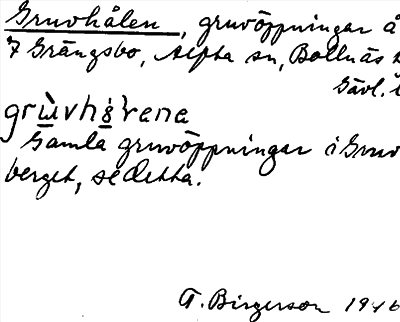 Gruvhålen, gruvöppningar å
7 Grängsbo, Alfta sn, Bollnäs
Gävl. l
grùvhɢ́ʹlrena
Gamla gruvöppningar i Gruv
berget, se detta.
T. Birgerson 1946